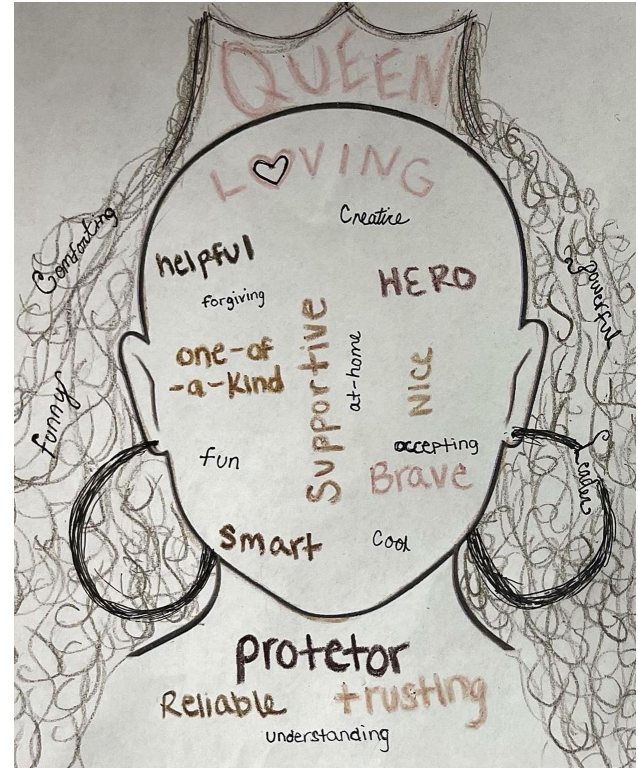 QUEEN
LOVING
Creative
Comforting
helpful
forgiving
HERO
powerful
one-of
-a-kind
Supportive
at-home
NICE
funny
fun
accepting
Brave
Leader
Smart
Cool
protetor
Reliable
trusting
understanding